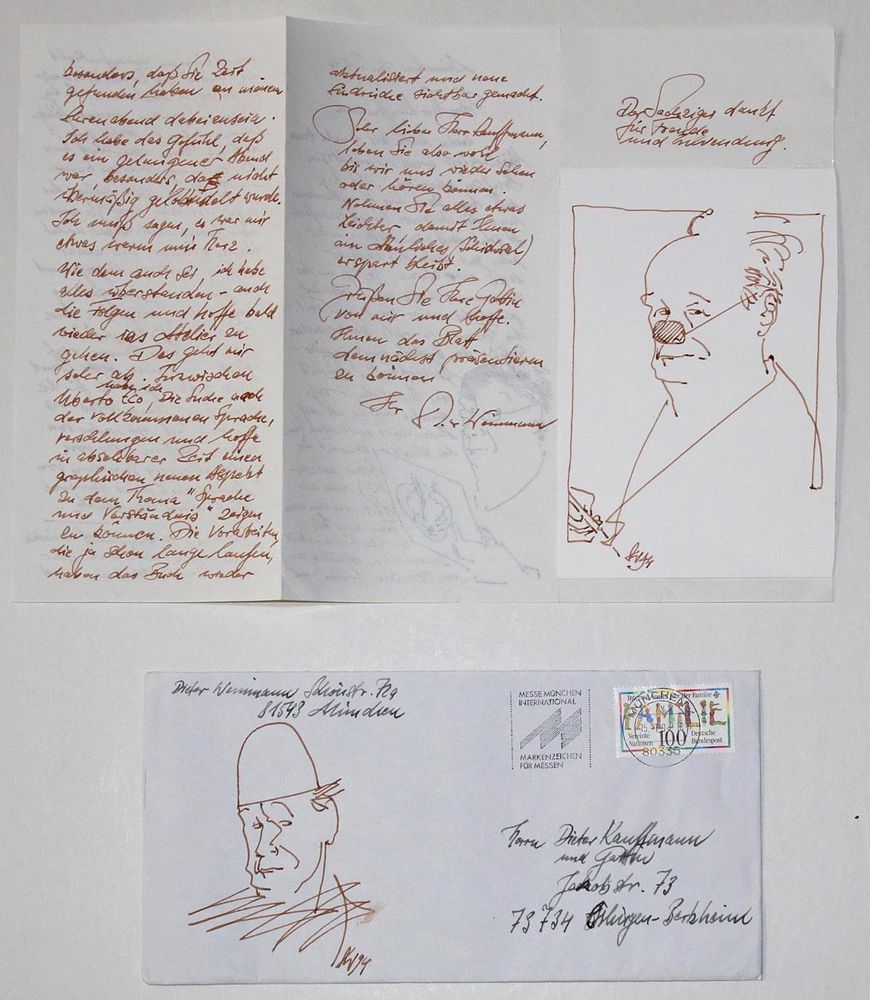 besonders, daß Sie Zeit
gefunden haben an meinem
Ehrenabend dabeizusein.
Ich habe das Gefühl, daß
es ein gelungener Abend
war, besonders, daß nicht
übermäßig gelobhudelt wurde.
Ich muß sagen, es war mir
etwas warm ums Herz.
Wie dem auch sei, ich habe
alles überstanden - auch
die Folgen und hoffe bald
wieder ins Atelier zu
gehen. Das geht mir
sehr ab. Inzwischen
habe ich
Umberto Eco Die Suche nach
der vollkommenen Sprache,
verschlungen und hoffe
in absehbarer Zeit einen
graphischen neuen Aspekt
zu dem Thema "Sprache
und Verständnis" zeigen
zu können. Die Vorarbeiten,
die ja schon lange laufen,
haben das Buch wieder
aktualisiert und neue
Eindrücke sichtbar gemacht.
Sehr lieber Herr Kauffmann,
leben Sie also wohl
bis wir uns wieder sehen
oder hören können.
Nehmen Sie alles etwas
leichter damit Ihnen
ein ähnliches Schicksal
erspart bleibt.
Grüßen Sie Ihre Gattin
von mir und hoffe.
Ihnen das Blatt
demnächst präsentieren
zu können
Ihr D. Weinmann
Der Sechziger dankt
für Freude
und Zuwendung.
94
Dieter Weinmann Schönstr. 72a
81543 München
MESSE MÜNCHEN
INTERNATIONAL
MARKENZEICHEN
FÜR MESSEN
der Familie
FAMILIE
MÜNCHEN
Vereinte
Nationen
100
Deutsche
Bundespost
80335
Herrn Dieter Kauffmann
und Gattin
Jakobstr. 73
73734 Eßlingen-Berkheim
94